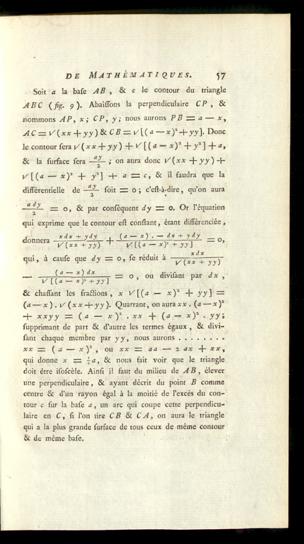 DE MATHÉMATIQUES. 57
Soit a la base AB, & c le contour du triangle
ABC (fig. 9). Abaissons la perpendiculaire CP, &
nommons AP, x; CP, y; nous aurons PB = a — x,
AC = √(xx+yy) & CB = √[(a — x)²+yy]. Donc
le contour sera √(xx+yy) + √[(a — x)² + y²] + a,
& la surface sera ay/2; on aura donc √(xx + yy) +
√[(a — x)² + y²] + a = c, & il faudra que la
différentielle de ay/2 soit = 0; c'est-à-dire, qu'on aura
ady/2 = 0, & par conséquent dy = 0. Or l'équation
qui exprime que le contour est constant, étant différenciée,
donnera xdx + ydy/√(xx + yy) + (a — x). — dx + ydy/√[(a — x)² + yy] = 0,
qui, à cause que dy = 0, se réduit à xdx/√(xx + yy)
— (a — x) dx/√[(a — x)² + yy] = 0, ou divisant par dx,
& chassant les fractions, x √[(a — x)² + yy] =
(a—x). √(xx+yy). Quarrant, on aura xx. (a—x)²
+ xxyy = (a — x)². xx + (a — x)². yy;
supprimant de part & d'autre les termes égaux, & divi-
sant chaque membre par yy, nous aurons . . . . . . . .
xx = (a — x)², ou xx = aa — 2 ax + xx,
qui donne x = ½a, & nous fait voir que le triangle
doit être isoscèle. Ainsi il faut du milieu de AB, élever
une perpendiculaire, & ayant décrit du point B comme
centre & d'un rayon égal à la moitié de l'excès du con-
tour c sur la base a, un arc qui coupe cette perpendicu-
laire en C, si l'on tire CB & CA, on aura le triangle
qui a la plus grande surface de tous ceux de même contour
& de même base.